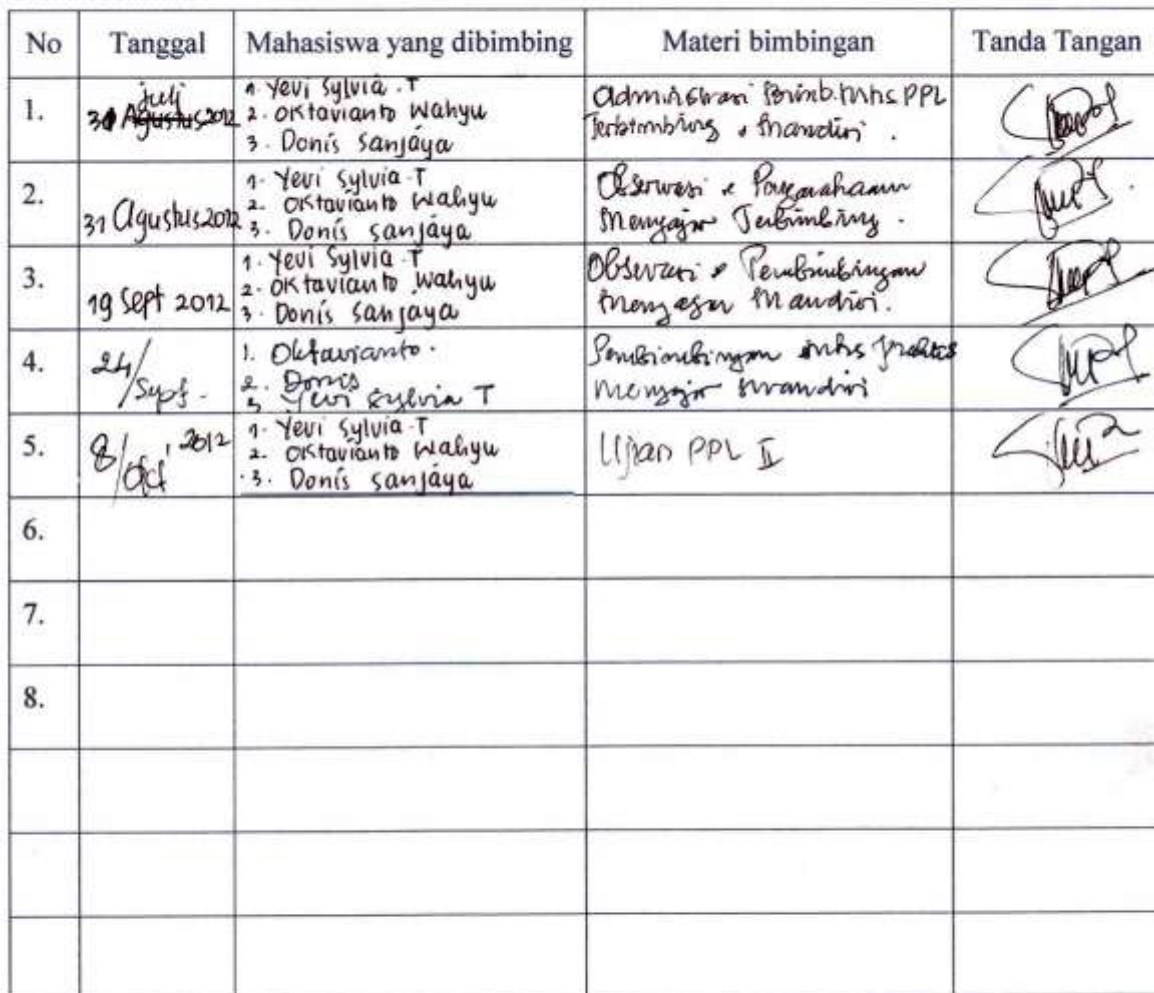 No Tanggal Mahasiswa yang dibimbing Materi bimbingan Tanda Tangan
1.
juli
31 Agustus 2012
1. Yevi Sylvia . T
2. Oktavianto Wahyu
3. Donis Sanjaya
Administrasi Bimb. Mhs PPL
Terbimbing & Mandiri .
2.
31 Agustus 2012
1. Yevi Sylvia . T
2. Oktavianto Wahyu
3. Donis Sanjaya
Observasi & Pengarahan
Mengajar Terbimbing .
3.
19 Sept 2012
1. Yevi Sylvia . T
2. Oktavianto Wahyu
3. Donis Sanjaya
Observasi & Pembimbingan
Mengajar Mandiri .
4.
24/Sept .
1. Oktavianto .
2. Donis
3. Yevi Sylvia T
Pembimbingan
mengajar mandiri
5.
8/Oct ' 2012
1. Yevi Sylvia . T
2. Oktavianto Wahyu
3. Donis Sanjaya
Ujian PPL II
6.
7.
8.